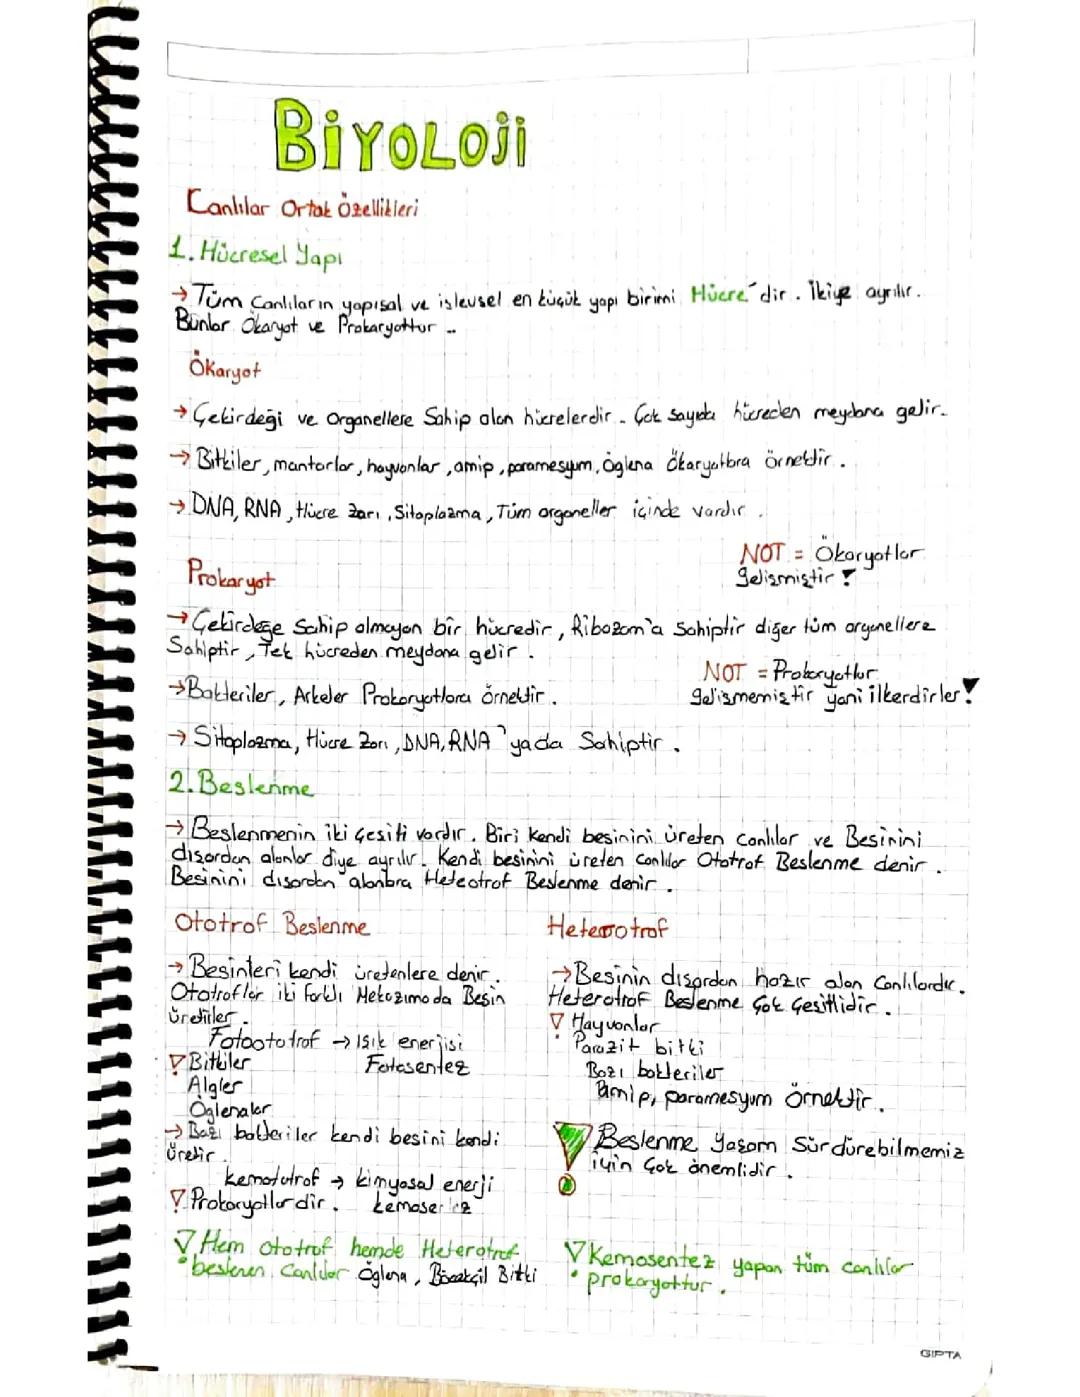 BiYOLOJi
Canlılar Ortak Özellikleri
1. Hücresel Yapı
→ Tüm Canlıların yapısal ve işlevsel en küçük yapı birimi Hücre'dir. İkiye ayrılır.
Bunlar Ökaryot ve Prokaryottur..
Ökaryot
→ Çekirdeği ve Organellere Sahip olan hücrelerdir. Çok sayıda hücreden meydana gelir.
→ Bitkiler, mantarlar, hayvanlar, amip, paramesyum, Öglena Ökaryotlara Örnektir.
→ DNA, RNA, Hücre Zarı, Sitoplazma, Tüm organeller içinde vardır.
NOT = Ökaryotlar
gelişmiştir!
Prokaryot
→ Çekirdeğe Sahip olmayan bir hücredir, Ribozom'a Sahiptir diğer tüm organellere
Sahiptir, Tek hücreden meydana gelir.
NOT = Prokaryotlar
gelişmemiştir yani ilkerdirler!
→ Bakteriler, Arkeler Prokaryotlara Örnektir.
→ Sitoplazma, Hücre Zarı, DNA, RNA'yada Sahiptir.
2. Beslenme
→ Beslenmenin iki çeşiti vardır. Biri kendi besinini üreten canlılar ve Besinini
dışardan alanlar diye ayrılır. Kendi besinini üreten canlılar Ototrof Beslenme denir.
Besinini dışardan alanlara Heteotrof Beslenme denir.
Ototrof Beslenme
→ Besinleri kendi üretenlere denir.
Ototroflar iki farklı Mekazimada Besin
üretirler.
Fotoototrof → Işık enerjisi
Fotosentez
Bitkiler
Algler
Öglenalar
→ Bazı bakteriler kendi besini kendi
üretir.
kemototrof → kimyasal enerji
kemosentez
Prokaryotlardır.
Hem ototrof hemde Heterotrof
beslenen Canlılar Öglena, Böcekçil Bitki
Heterotrof
→ Besinin dışardan hazır alan Canlılardır.
Heterotrof Beslenme Çok Çeşitlidir.
Hayvanlar
Parazit bitki
Bazı bakteriler
amip, paramesyum Örnektir.
Beslenme Yaşam Sürdürebilmemiz
için Çok önemlidir.
Kemosentez yapan tüm canlılar
prokaryottur.
GIPTA